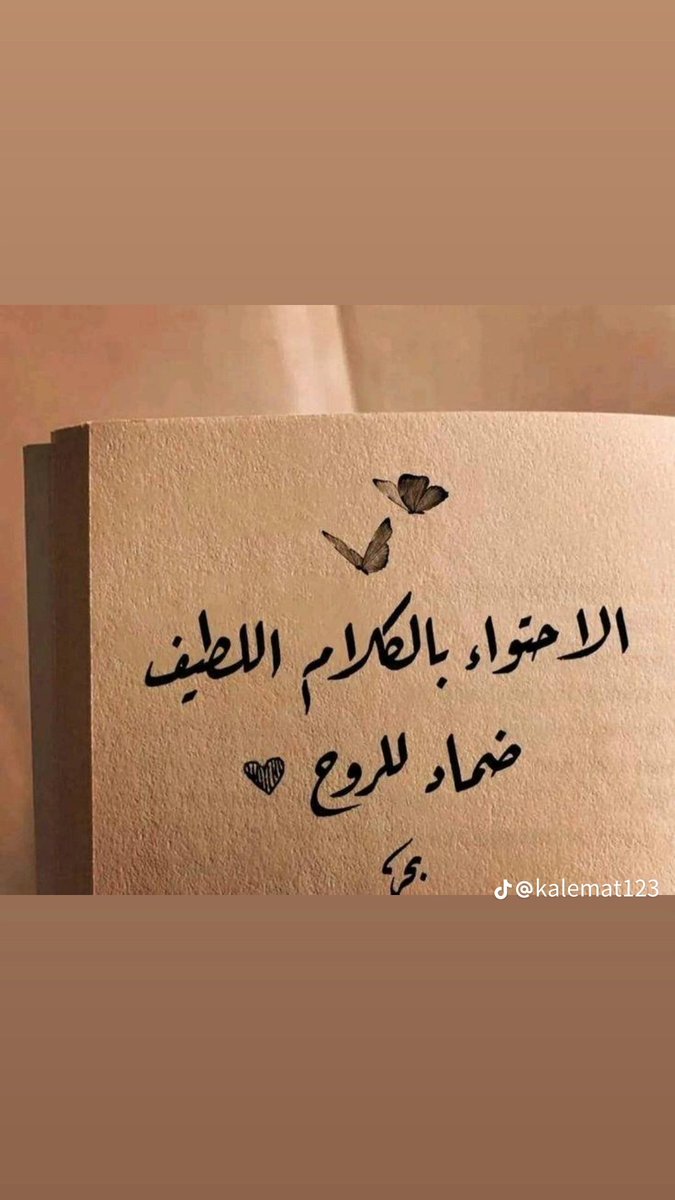 الاحتواء بالكلام اللطيف
ضماد للروح
@kalemat123